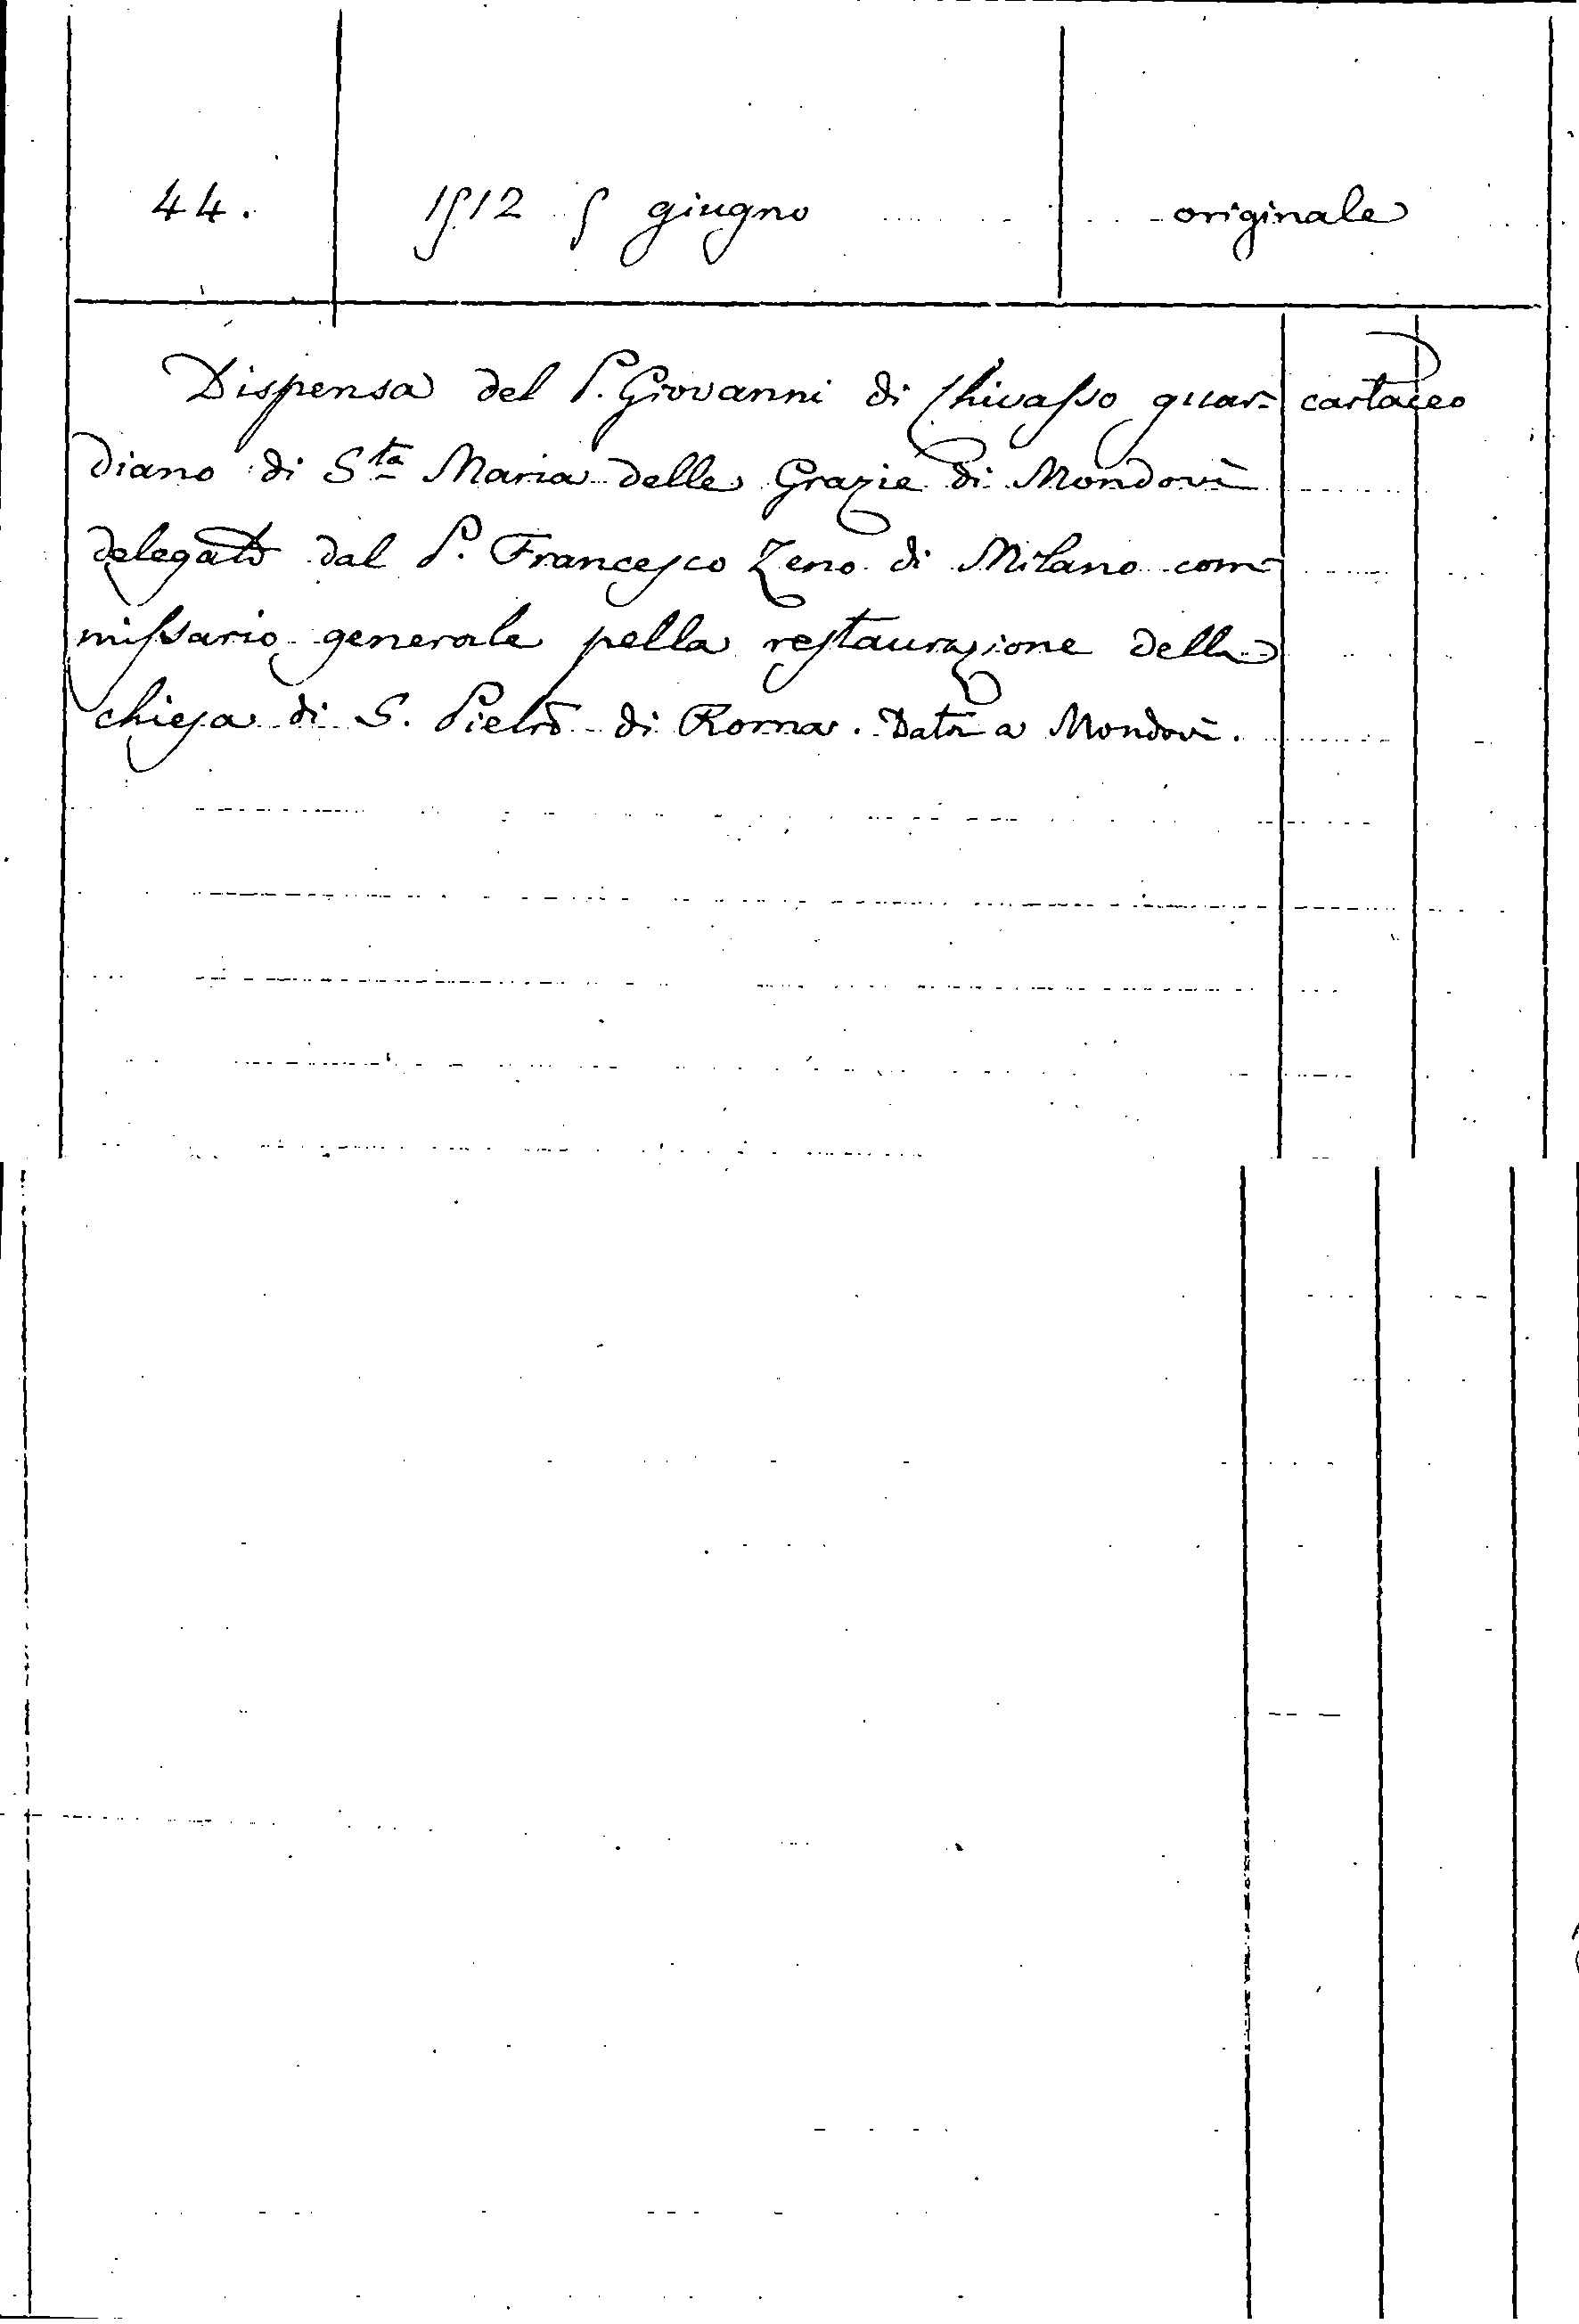 44. 1512 5 giugno originale
Dispensa del P. Giovanni di Chivasso guar= cartaceo
diano di Sta Maria delle Grazie di Mondovì
delegato dal P. Francesco Zeno di Milano com
missario generale pella restaurazione della
chiesa di S. Pietro di Roma. Data a Mondovì.